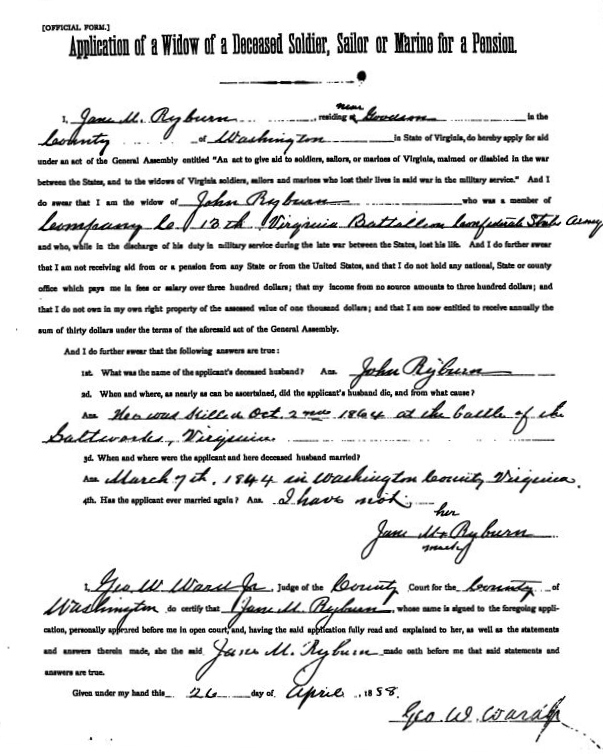 [OFFICIAL FORM.]
Application of a Widow of a Deceased Soldier, Sailor or Marine for a Pension.
near
I, Jane M. Ryburn, residing Goodson in the
County of Washington in State of Virginia, do hereby apply for aid
under an act of the General Assembly entitled "An act to give aid to soldiers, sailors, or marines of Virginia, maimed or disabled in the war
between the States, and to the widows of Virginia soldiers, sailors and marines who lost their lives in said war in the military service." And I
do swear that I am the widow of John Ryburn who was a member of
Company C 13th Virginia Battalion Confederate States Army
and who, while in the discharge of his duty in military service during the late war between the States, lost his life. And I do further swear
that I am not receiving aid from or a pension from any State or from the United States, and that I do not hold any national, State or county
office which pays me in fees or salary over three hundred dollars; that my income from no source amounts to three hundred dollars; and
that I do not own in my own right property of the assessed value of one thousand dollars; and that I am now entitled to receive annually the
sum of thirty dollars under the terms of the aforesaid act of the General Assembly.
And I do further swear that the following answers are true:
1st. What was the name of the applicant's deceased husband? Ans. John Ryburn
2d. When and where, as nearly as can be ascertained, did the applicant's husband die, and from what cause?
Ans He was killed Oct. 2nd 1864 at the battle of the
Saltworks, Virginia
3d. When and where were the applicant and here deceased husband married?
Ans March 7th, 1844 in Washington County Virginia.
4th. Has the applicant ever married again? Ans. I have not.
her
Jane M x Ryburn
mark
I, Geo W. Ward Jr, Judge of the County Court for the County of
Washington do certify that Jane M. Ryburn, whose name is signed to the foregoing appli-
cation, personally appeared before me in open court, and, having the said application fully read and explained to her, as well as the statements
and answers therein made, she the said Jane M. Ryburn made oath before me that said statements and
answers are true.
Given under my hand this 26 day of April 1888.
Geo. W. Ward Jr